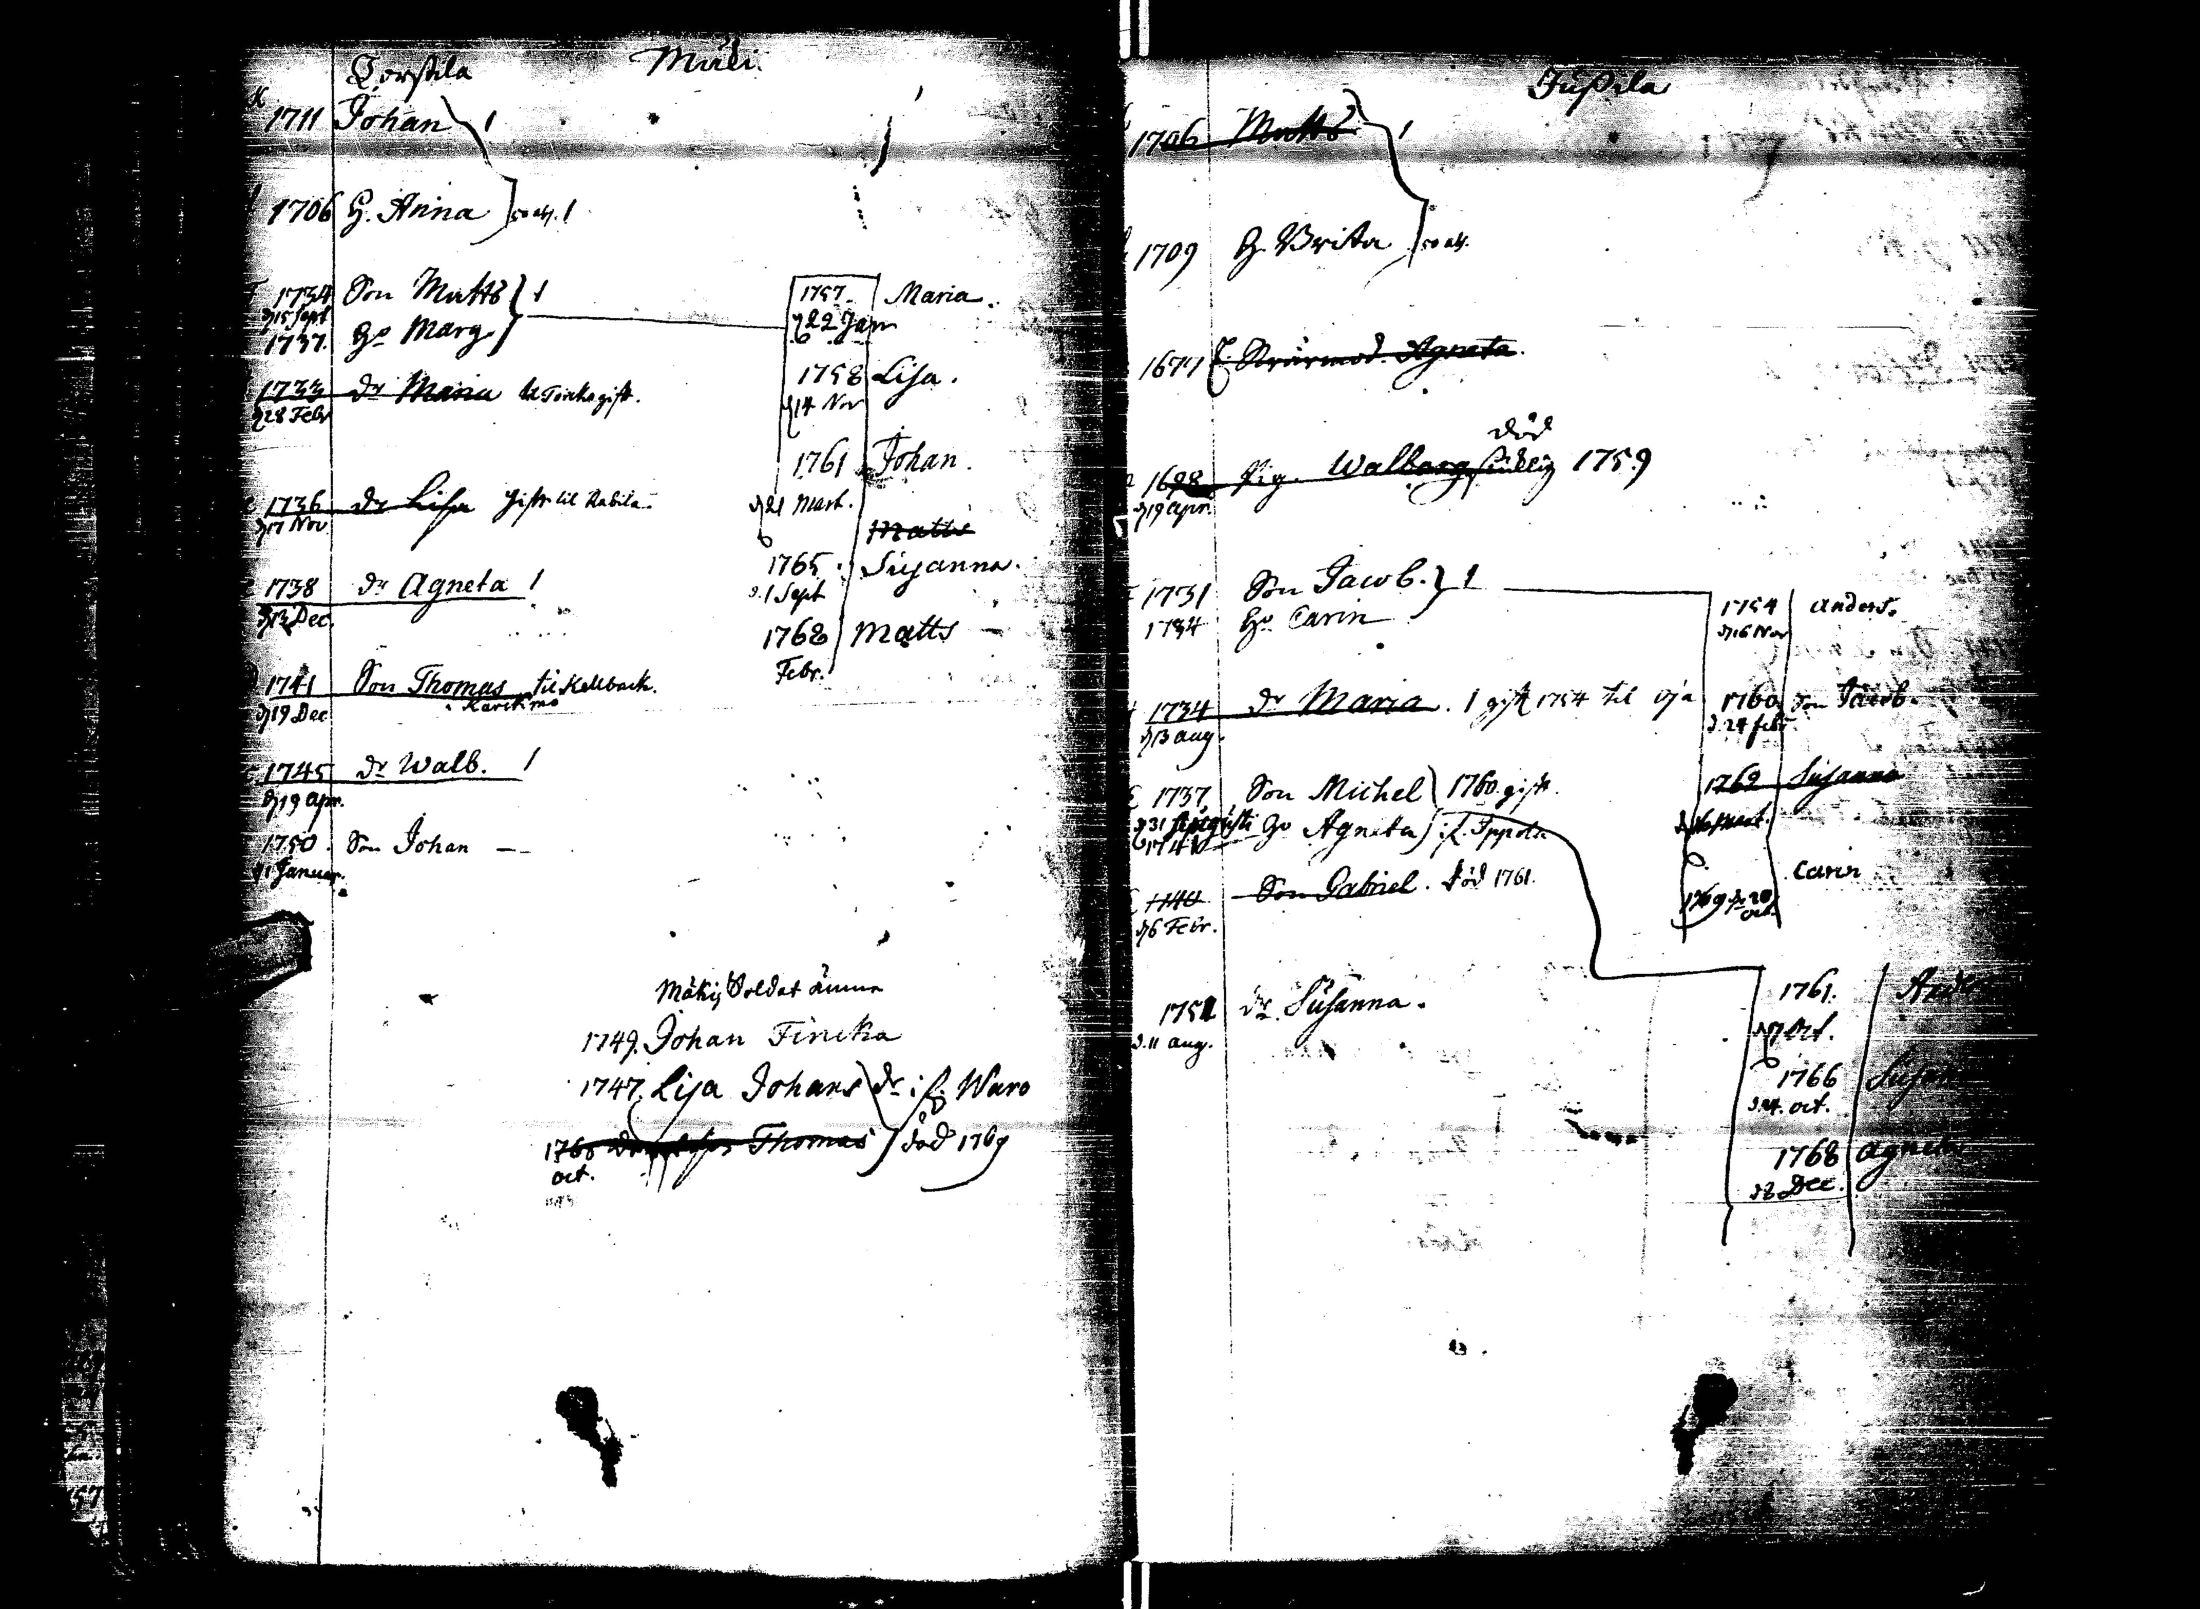 Torsila Muli
1711 Johan 1
1706 H. Anna 1
1734 Son Matts 1
d 15 Sept
1737. Ho Marg.
1733 dr Maria gift.
d 28 Febr
1736 dr Lisa gift til Rabila
d 17 Nov
1738 dr Agneta 1
d 13 Dec.
1741 Son Thomas til Kellback.
d 19 Dec
1745 dr Walb. 1
d 19 Apr.
1750. Son Johan
d 1 Januar.
1757. Maria.
d 22 Jan
1758 Lisa.
d 14 Nov
1761 Johan.
d 21 Mart.
Matts
1765. Susanna.
d. 1 Sept
1768 Matts
Febr.
Mäkis Soldat
1749. Johan Fincka
1747. Lisa Johans dr i f. Waro
1768 Thomas död 1769
oct.
Jussila
1706 Matts 1
1709 H. Brita
1677 E. Swärmod. Agneta.
död
1698 Pig. Walborg siuklig 1759
d 19 Apr.
1731 Son Jacob. 1
1734 Ho Carin
1734 dr Maria. 1 gift 1754 til
d 13 aug.
1737 Son Michel 1760 gift.
d 31 Augusti Ho Agneta i f. Ippola
1741
1740 Son Gabriel. död 1761.
d 6 Febr.
1751 dr Susanna.
d. 11 aug.
1754 Anders.
d 16 Nov
1760 Son Jacob.
d. 24 febr.
1762 Susanna
d 16 Mart.
Carin
1769 d. 20 oct.
1761.
d 7 Oct.
1766
d. 24. oct.
1768 Agneta
d 2 Dec.